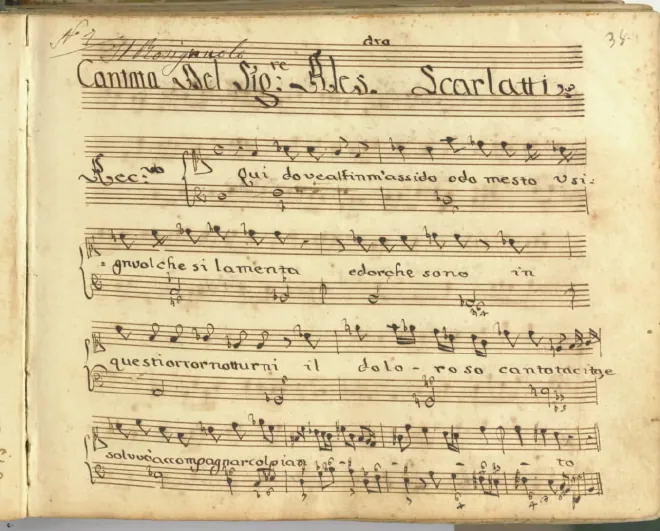 N 2 Il Rosignuolo
dro
38
Cantata Del Sig:re Ales. Scarlatti
Rec:vo
Qui dove alfin m'assido odo mesto Usi:
gnuol che si lamenta ed or che sono in
questi orror notturni il dolo-roso canto
solvvò accompagnar col pian - - - to